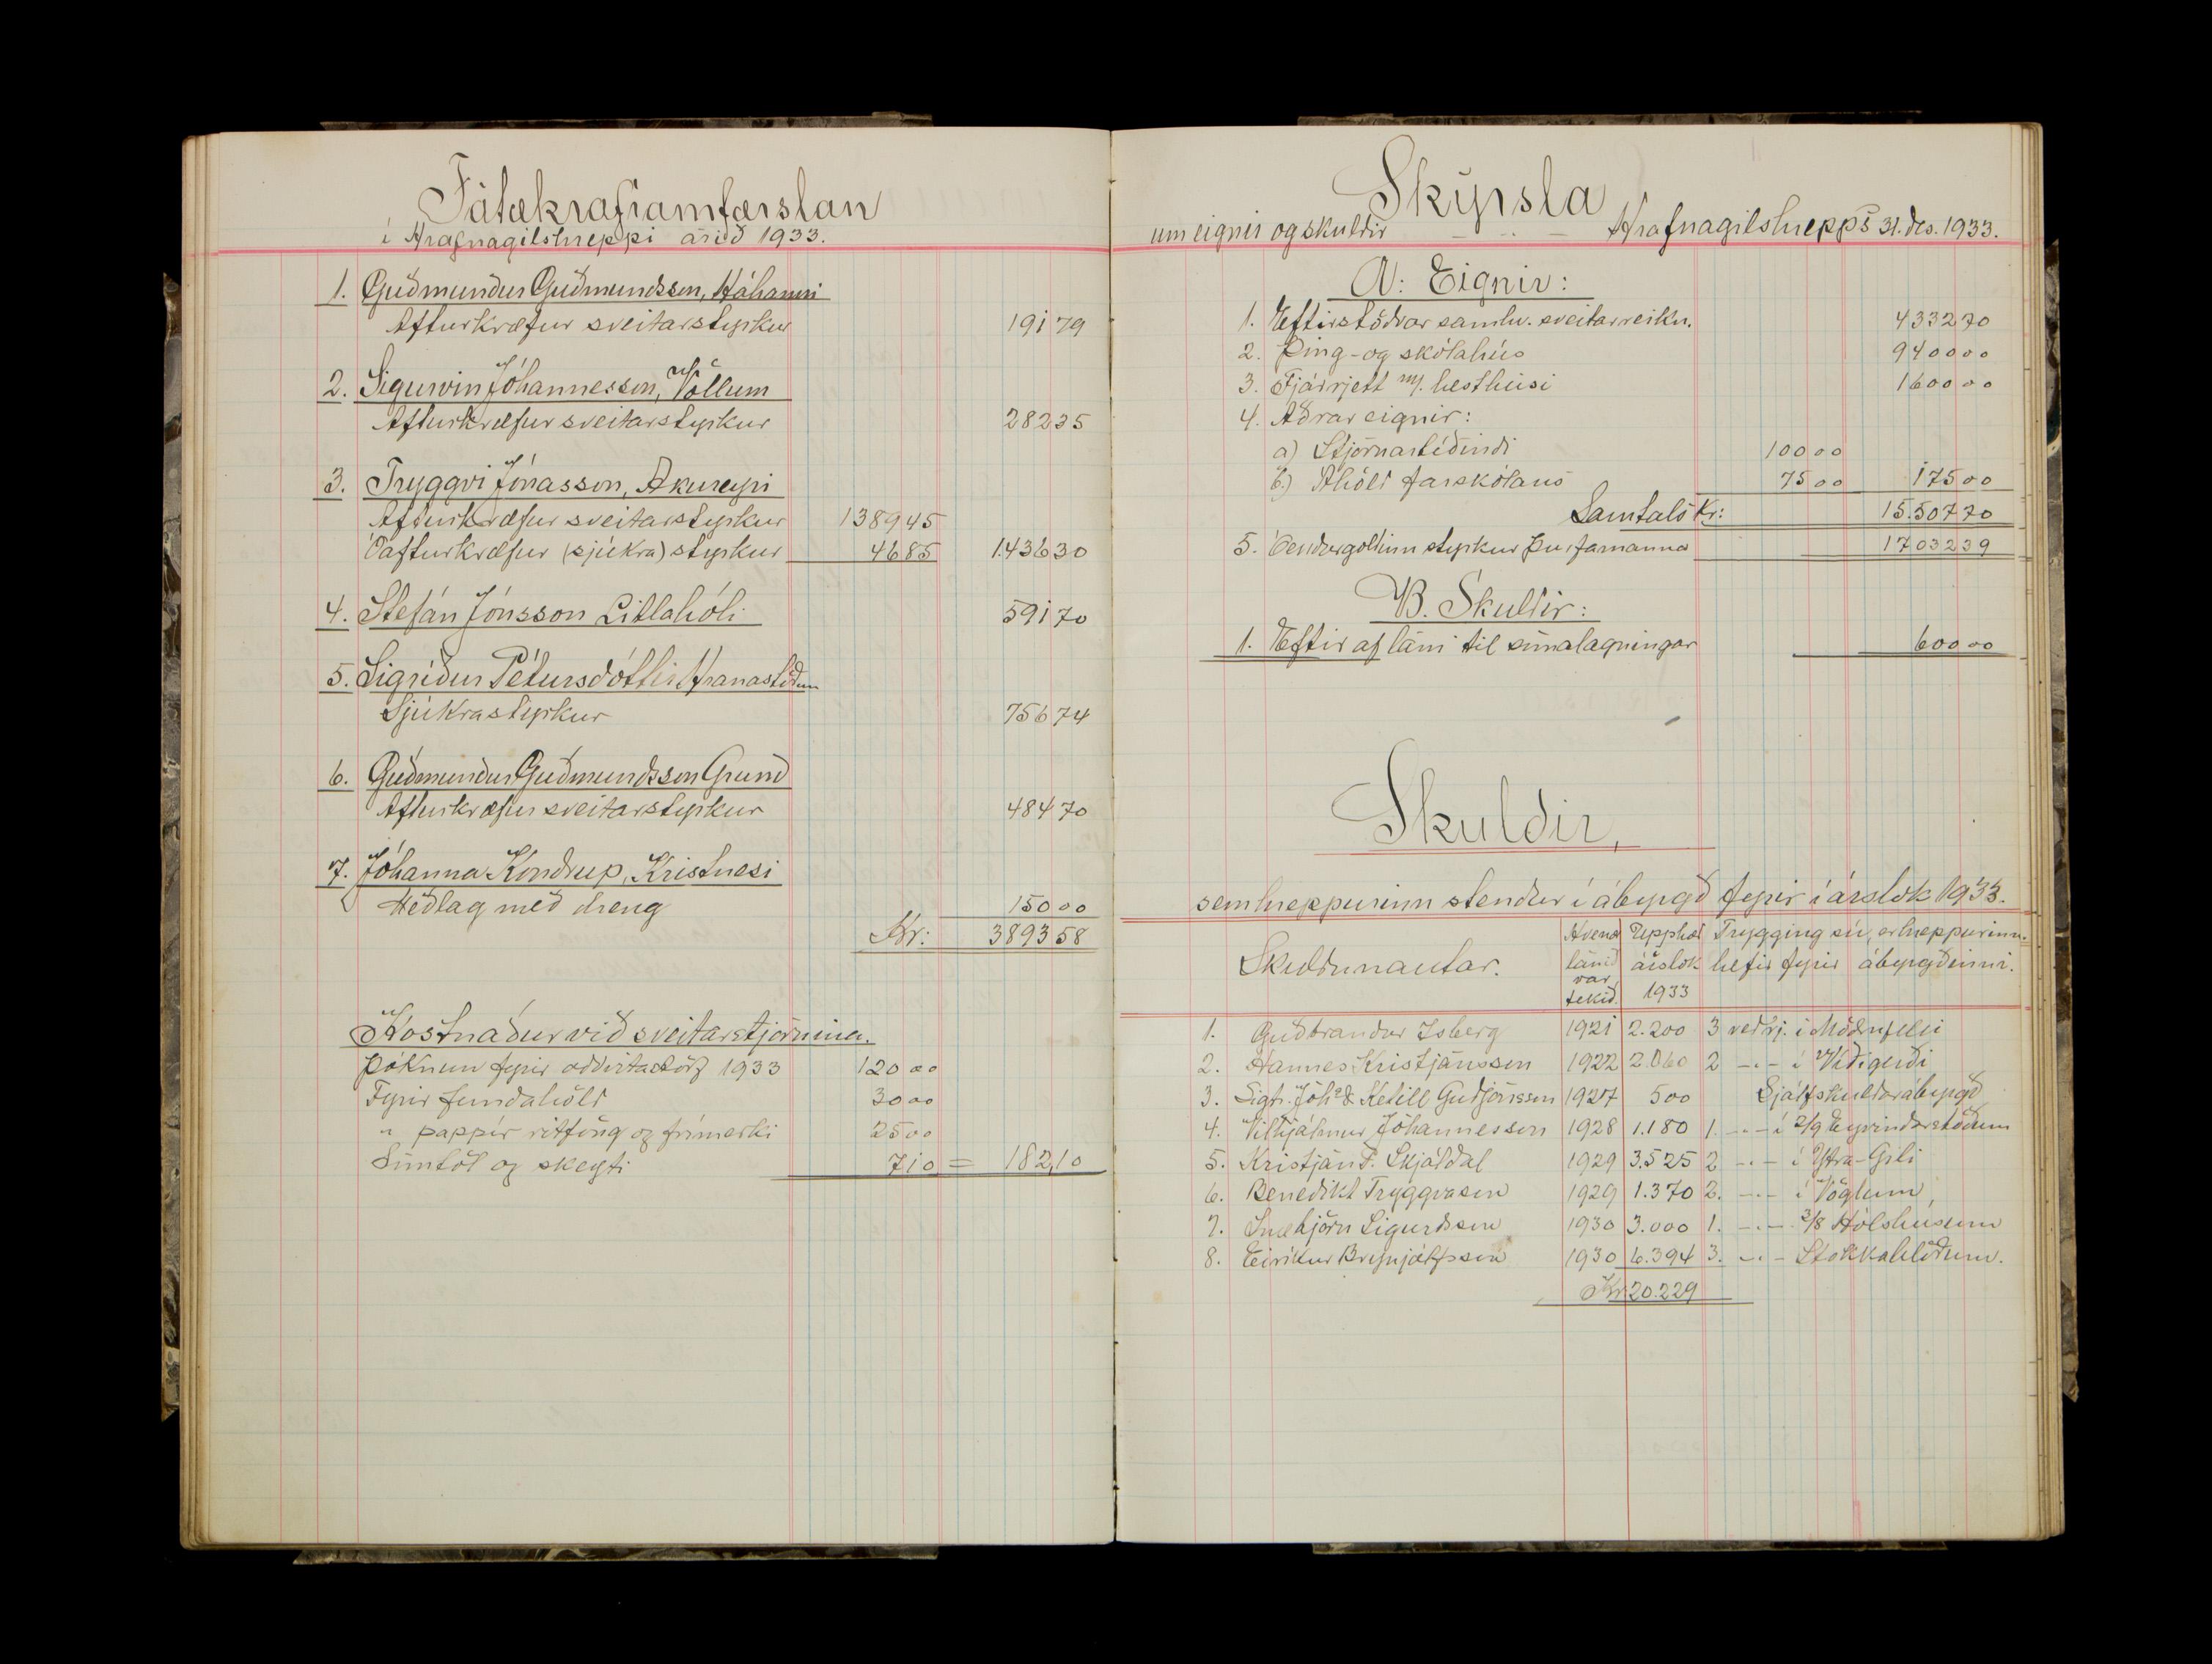 Fátækraframfærslan
í Hrafnagilshreppi árið 1933.
1. Guðmundur Guðmundsson, Háhamri
Afturkræfur sveitarstyrkur 191 79
2. Sigurvin Jóhannesson, Völlum
Afturkræfur sveitarstyrkur 282 35
3. Tryggvi Jónasson, Akureyri
Afturkræfur sveitarstyrkur 1389 45
Óafturkræfur (sjúkra) styrkur 46 85 1.436 30
4. Stefán Jónsson Litlahóli 591 70
5. Sigríður Pétursdóttir Hranastöðum
Sjúkrastyrkur 756 74
6. Guðmundur Guðmundsson Grund
Afturkræfur sveitarstyrkur 484 70
7. Jóhanna Kondrup, Kristnesi
Meðlag með dreng 150 00
Kr: 3893 58
Kostnaður við sveitarstjórnina.
Þóknun fyrir oddvitastörf 1933 120 00
Fyrir fundahöld 30 00
" pappír ritföng og frímerki 25 00
Símtöl og skeyti 7 10 = 182,10
Skýrsla
um eignir og skuldir Hrafnagilshrepps 31. des. 1933.
A: Eignir:
1. Eftirstöðvar samkv. sveitarreikn. 4332 70
2. Þing- og skólahús 9400 00
3. Fjárrjett m/. hesthúsi 1600 00
4. Aðrar eignir:
a) Stjórnartíðindi 100 00
b.) Áhöld farskólans 75 00 175 00
Samtals Kr: 15.507 70
5. Óendurgoldinn styrkur þurfamanna 17032 39
B. Skuldir:
1. Eftir af láni til símalagningar 600 00
Skuldir,
sem hreppurinn stendur í ábyrgð fyrir í árslok 1933.
Skuldunautar. Hvenær lánið var tekið. Upphæð árslok 1933 Trygging sú, er hreppurinn hefir fyrir ábyrgðinni.
1. Guðbrandur Ísberg 1921 2.200 3 veðrj. í Möðrufelli
2. Hannes Kristjánsson 1922 2.060 2 -.- í Víðigerði
3. Sigtr. Jóh. & Ketill Guðjónsson 1927 500 Sjálfskuldarábyrgð
4. Vilhjálmur Jóhannesson 1928 1.180 1. -.- í 2/9 Eyvindarstöðum
5. Kristján F. Skjóldal 1929 3.525 2 -.- í Ytra-Gili
6. Benedikt Tryggvason 1929 1.370 2. -.- í Vöglum,
7. Snæbjörn Sigurðsson 1930 3.000 1. -.- 3/8 Hólshúsum
8. Eiríkur Brynjólfsson 1930 6.394 3. -.- Stokkahlöðum.
Kr. 20.229